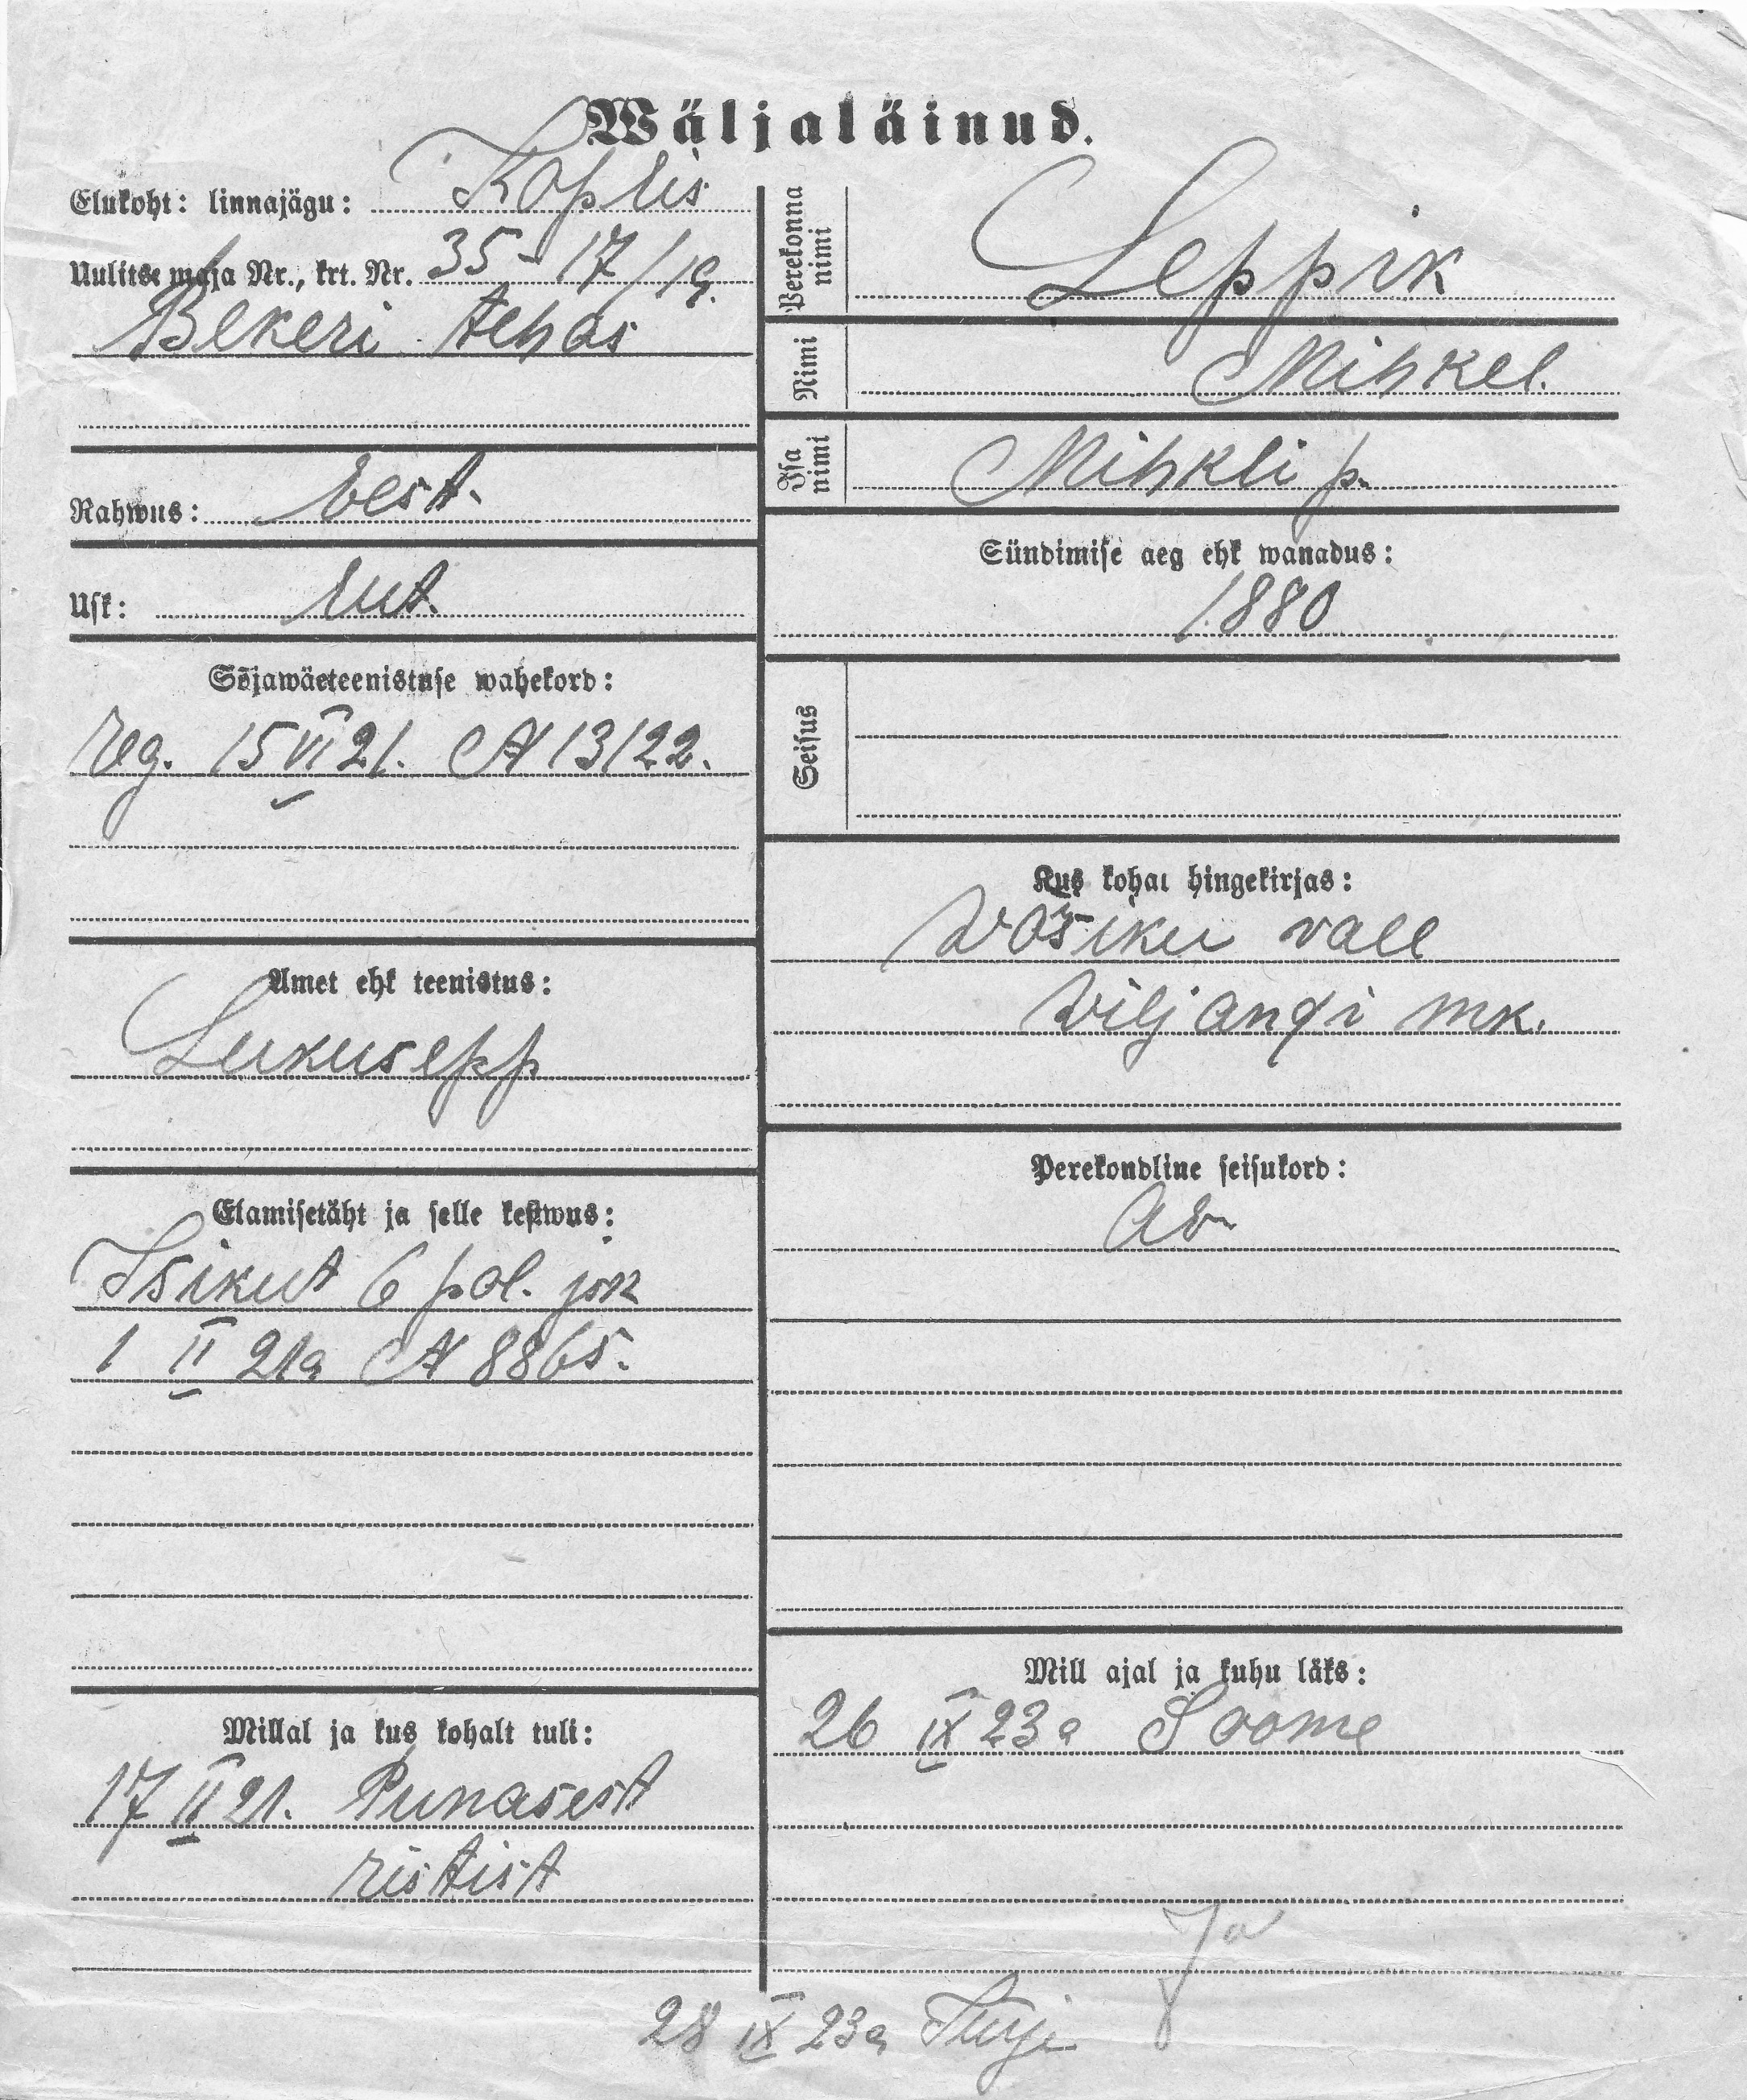 Wäljaläinud.
Elukoht: linnajägu: Koplis
Uulitse maja Nr., krt. Nr. 35-17/19.
Bekeri tehas
Rahwus: Eest.
Usk: Lut.
Sõjawäeteenistuse wahekord:
Reg. 15 VI 21. N 13122.
Amet ehk teenistus:
Lukusepp
Elamisetäht ja selle kestwus:
Isikut 6 pol. jsk
1 II 21a N 8865.
Millal ja kus kohalt tuli:
17 II 21. Punasest
ristist
Perekonna nimi Leppik
Nimi Mihkel.
Isa nimi Mihkli p.
Sündimise aeg ehk wanadus:
1880
Seisus
Kus kohal hingekirjas:
Wõsiku vall
Wiljandi mk.
Perekondline seisukord:
Ab.
Mill ajal ja kuhu läks:
26 IX 23a Soome
Ja
28 IX 23a